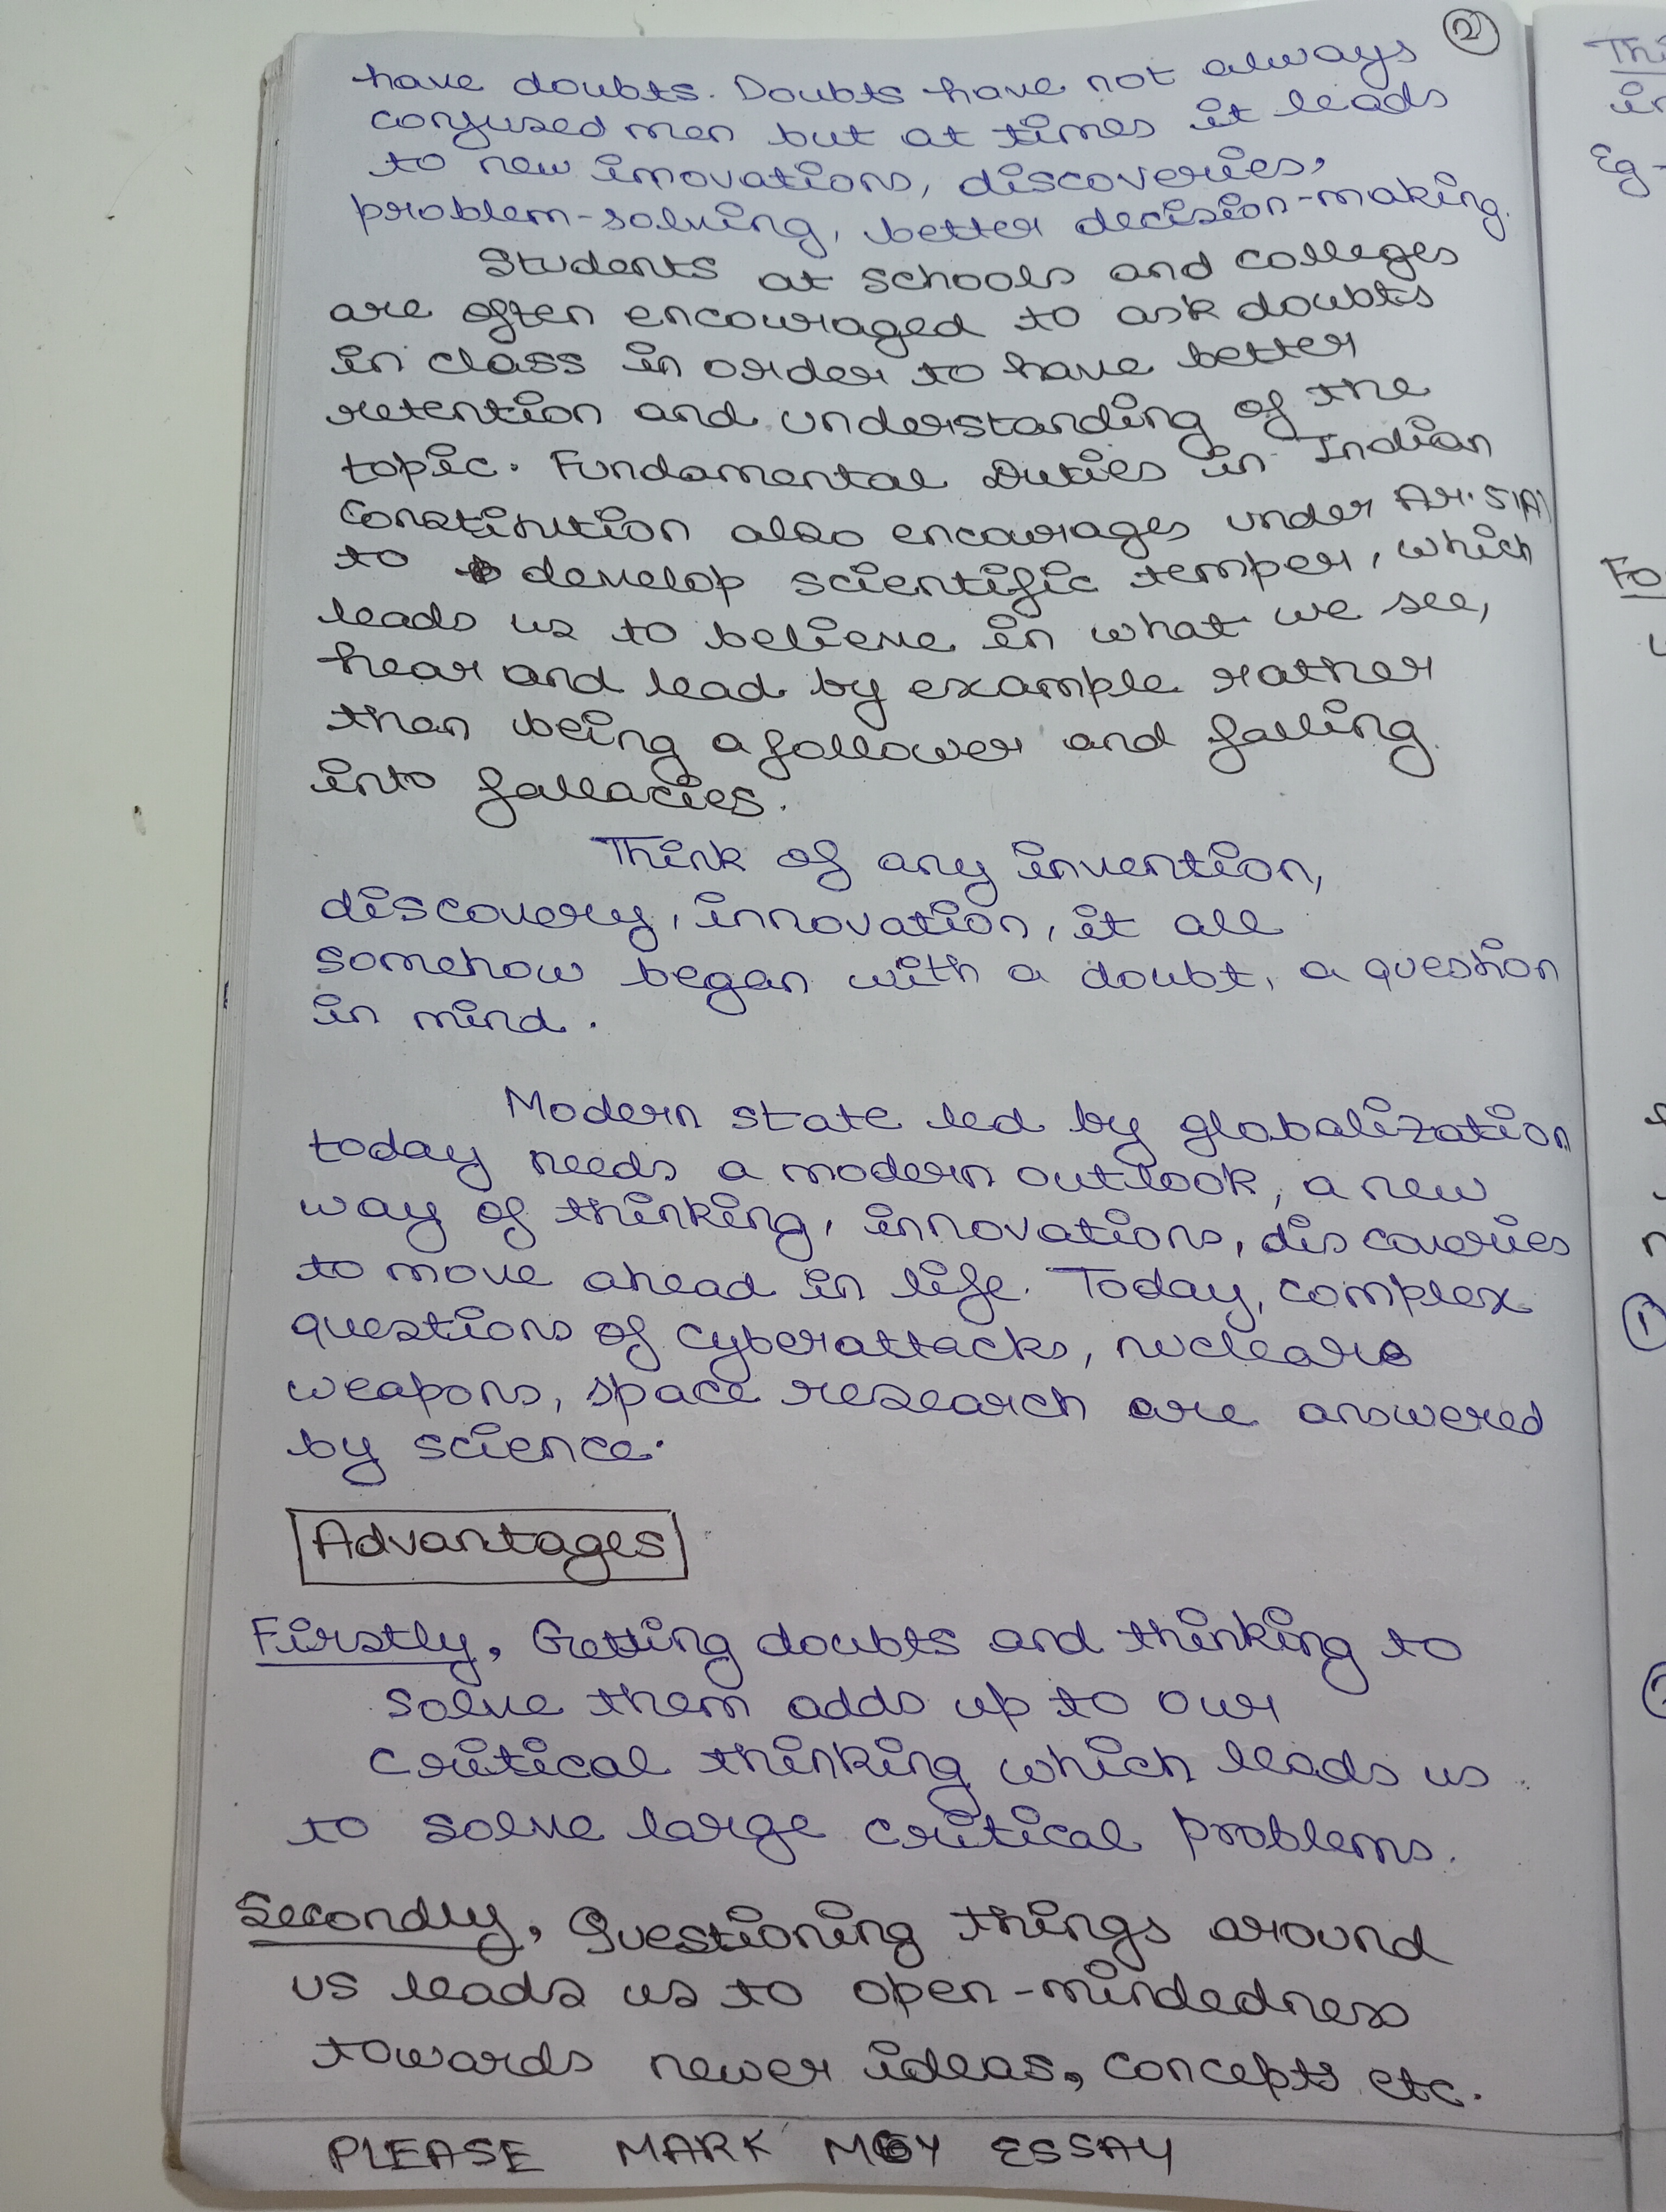 2
have doubts. Doubts have not always
confused men but at times it leads
to new innovations, discoveries,
problem-solving, better decision-making.
Students at schools and colleges
are often encouraged to ask doubts
in class in order to have better
retention and understanding of the
topic. Fundamental Duties in Indian
Constitution also encourages under Ar. 51A
to develop scientific temper, which
leads us to believe in what we see,
hear and lead by example rather
than being a follower and falling
into fallacies.
Think of any invention,
discovery, innovation, it all
somehow began with a doubt, a question
in mind.
Modern state led by globalization
today needs a modern outlook, a new
way of thinking, innovations, discoveries
to move ahead in life. Today, complex
questions of cyberattacks, nuclear
weapons, space research are answered
by science.
Advantages
Firstly, Getting doubts and thinking to
solve them adds up to our
critical thinking which leads us
to solve large critical problems.
Secondly, Questioning things around
us leads us to open-mindedness
towards newer ideas, concepts etc.
PLEASE MARK MY ESSAY
Thi
in
Eg-
Fo
1